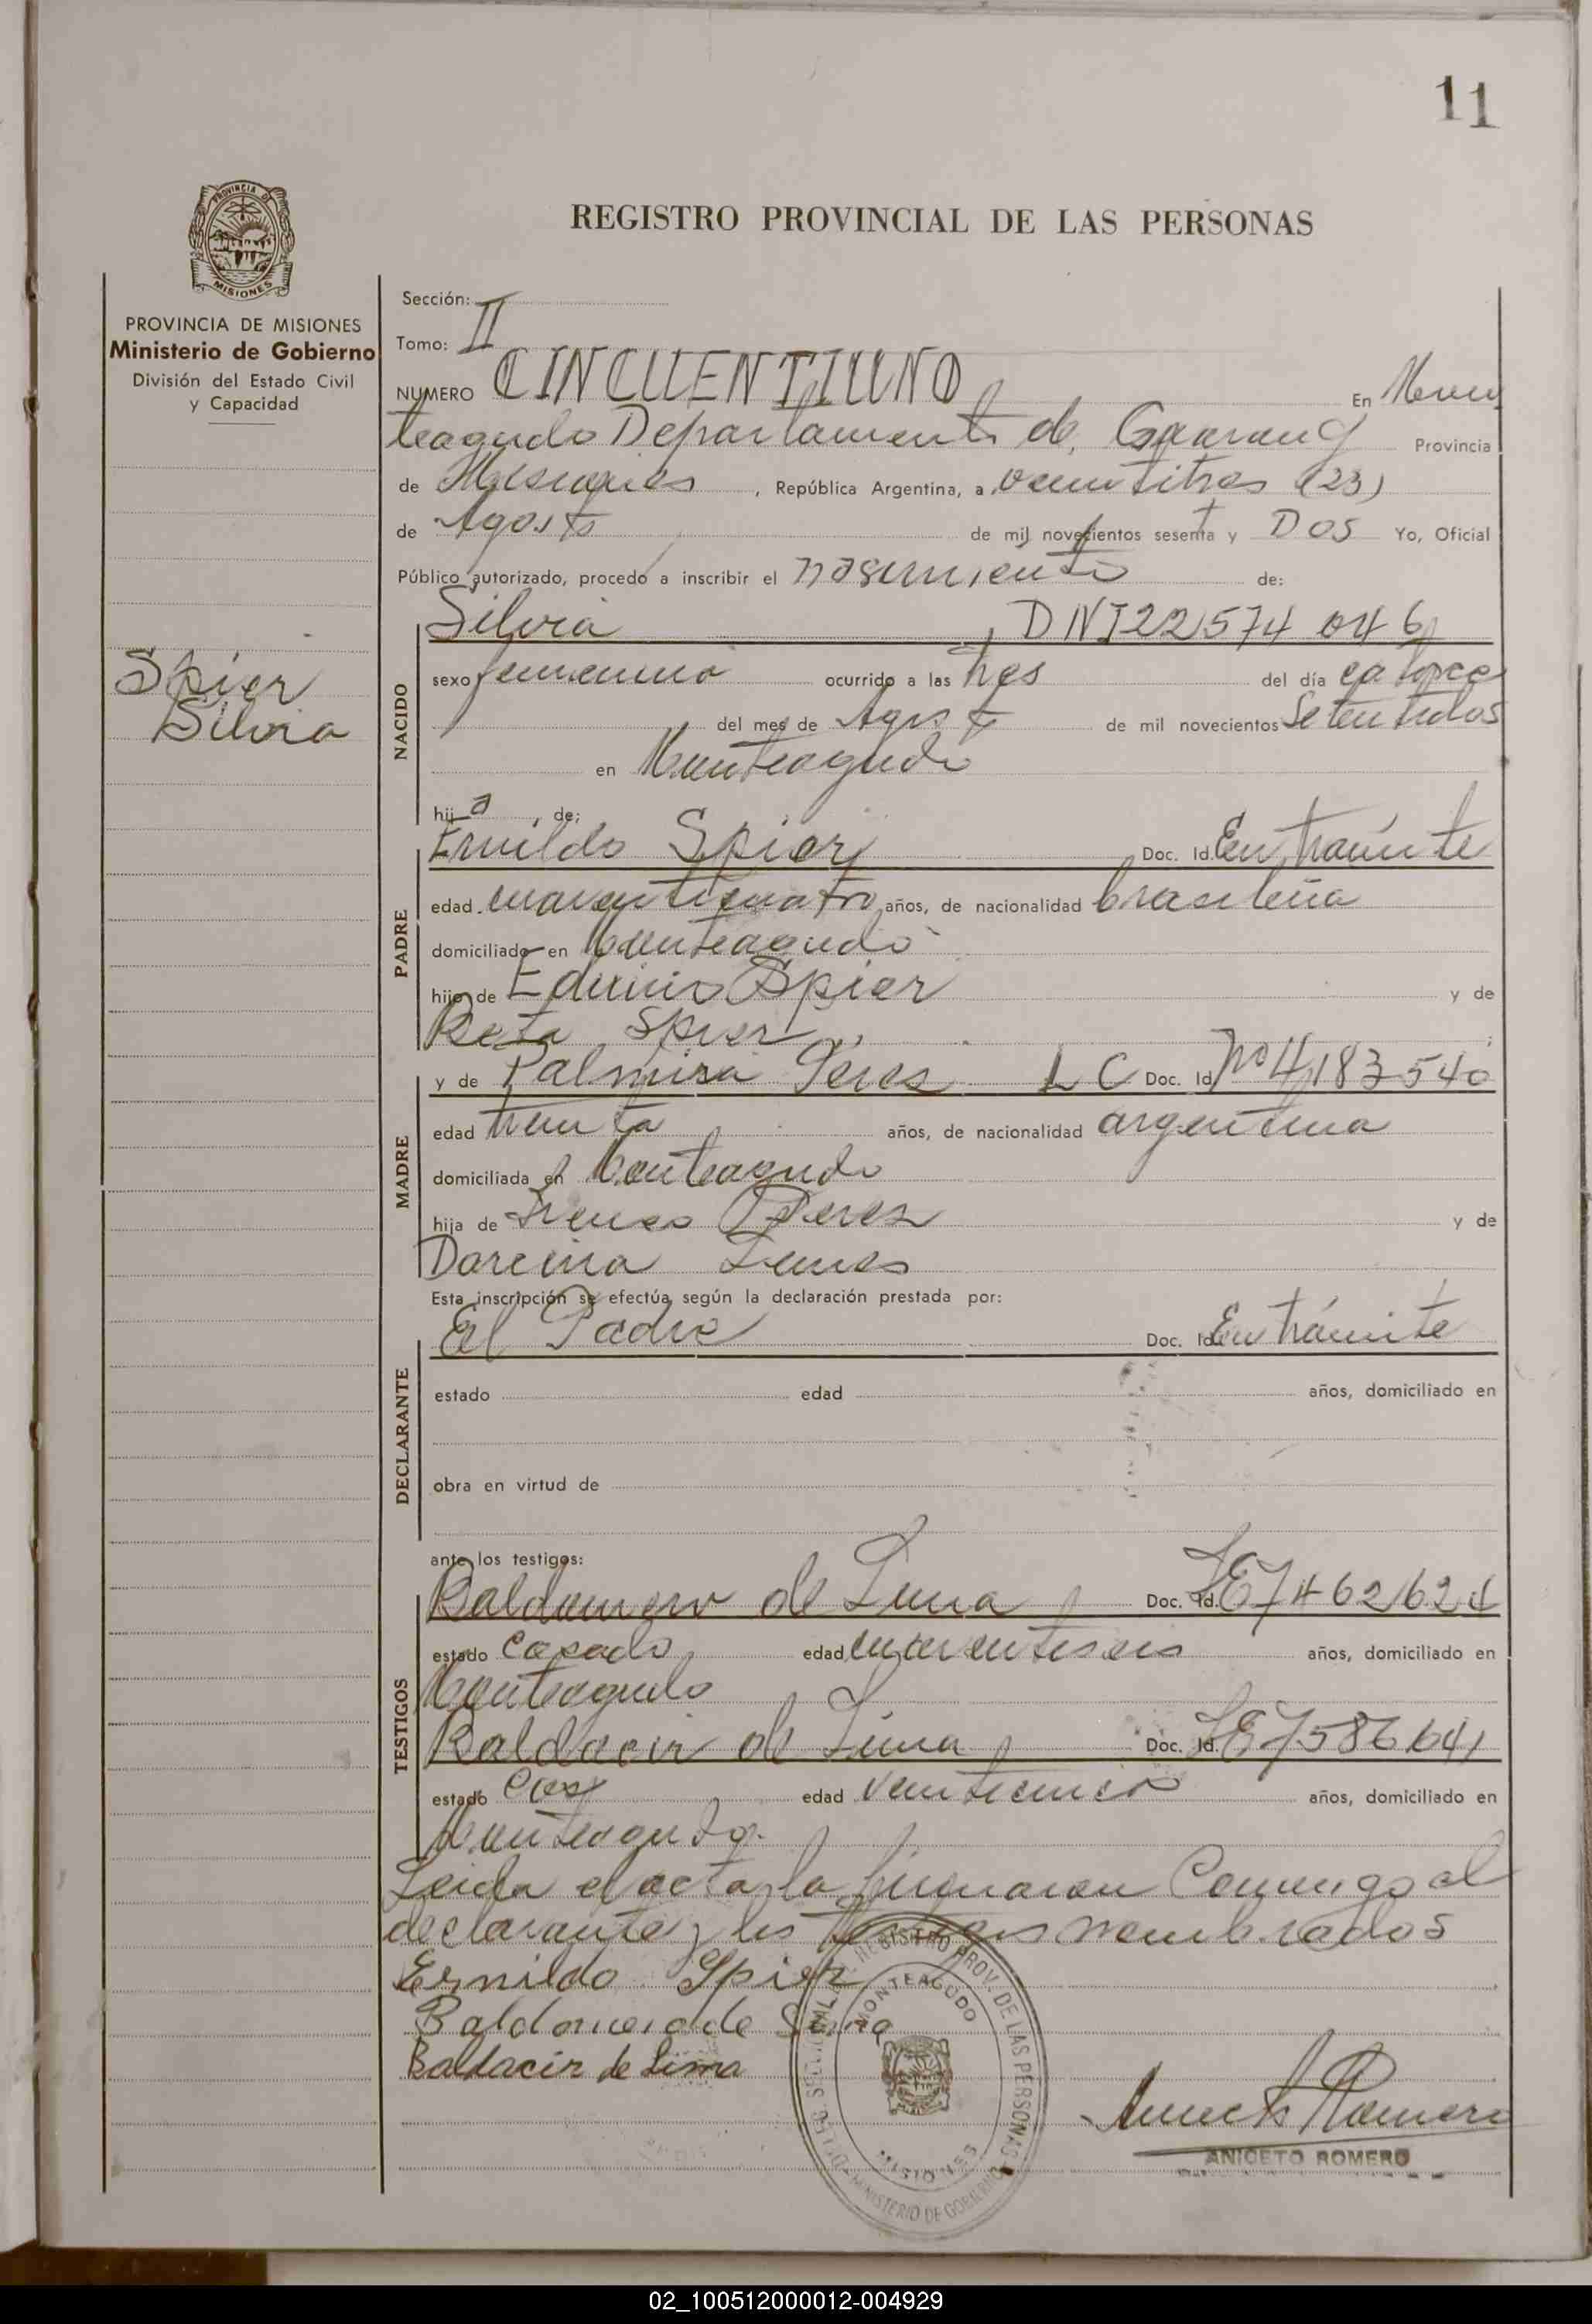 11
REGISTRO PROVINCIAL DE LAS PERSONAS
PROVINCIA DE MISIONES
Ministerio de Gobierno
División del Estado Civil
y Capacidad
Spier
Silvia
Sección:
Tomo: II
NUMERO CINCUENTIUNO En Mon
teagudo Departamento de Guaraní Provincia
de Misiones, República Argentina, a veintitres (23)
de Agosto de mil novecientos sesenta y DOS Yo, Oficial
Público autorizado, procedo a inscribir el nasimiento de:
NACIDO
Silvia, DNI 22 574 046
sexo femenino ocurrido a las tres del día catorce
del mes de Agosto de mil novecientos Setentidos
en Monteagudo
hija, de:
PADRE
Ernildo Spier Doc. Id. En trámite
edad cuarenticuatro años, de nacionalidad brasileña
domiciliado en Monteagudo
hijo de Edwino Spier y de
Beta Spier
MADRE
y de Palmira Peres L C Doc. Id. No 4,183 540
edad treinta años, de nacionalidad argentina
domiciliada en Monteagudo
hija de Ireneo Peres y de
Dorcina
Esta inscripción se efectúa según la declaración prestada por:
DECLARANTE
El Padre Doc. Id. En trámite
estado edad años, domiciliado en
obra en virtud de
ante los testigos:
TESTIGOS
Baldomero de Lima Doc. Id. LE 7462621
estado Casado edad cuarentiseis años, domiciliado en
Monteagudo
Baldacir de Lima Doc. Id. LE 7586641
estado Cas edad veinticinco años, domiciliado en
Monteagudo.
Leida el acta la firmaron Conmigo el
declarante y los testigos nombrados
Ernildo Spier
Baldomero de Lima
Baldacir de Lima
REGISTRO PROV. DE LAS PERSONAS
MONTEAGUDO
MISIONES
MINISTERIO DE GOBIERNO
Aniceto Romero
ANICETO ROMERO
02_100512000012-004929